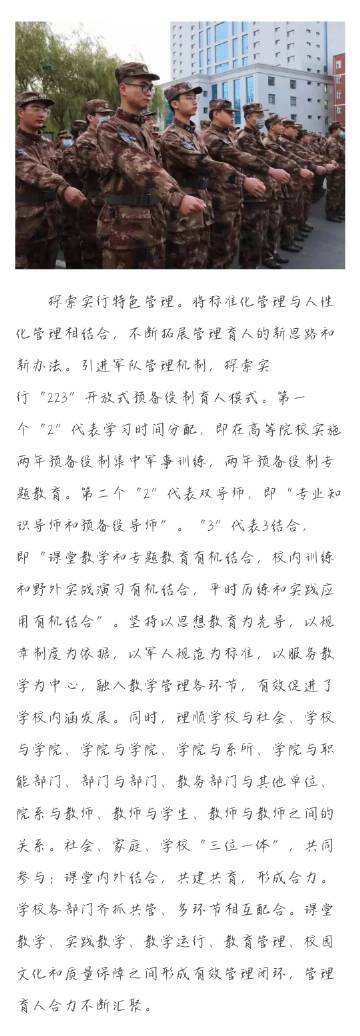 探索实行特色管理。将标准化管理与人性
化管理相结合，不断拓展管理育人的新思路和
新办法。引进军队管理机制，探索实
行“223”开放式预备役制育人模式。第一
个“2”代表学习时间分配，即在高等院校实施
两年预备役制集中军事训练，两年预备役制专
题教育。第二个“2”代表双导师，即“专业知
识导师和预备役导师”。“3”代表3结合，
即“课堂教学和专题教育有机结合，校内训练
和野外实战演习有机结合，平时历练和实践应
用有机结合”。坚持以思想教育为先导，以规
章制度为依据，以军人规范为标准，以服务教
学为中心，融入教学管理各环节，有效促进了
学校内涵发展。同时，理顺学校与社会、学校
与学院、学院与学院、学院与系所、学院与职
能部门、部门与部门、教务部门与其他单位、
院系与教师、教师与学生、教师与教师之间的
关系。社会、家庭、学校“三位一体”，共同
参与；课堂内外结合，共建共育，形成合力。
学校各部门齐抓共管、多环节相互配合。课堂
教学、实践教学、教学运行、教育管理、校园
文化和质量保障之间形成有效管理闭环，管理
育人合力不断汇聚。